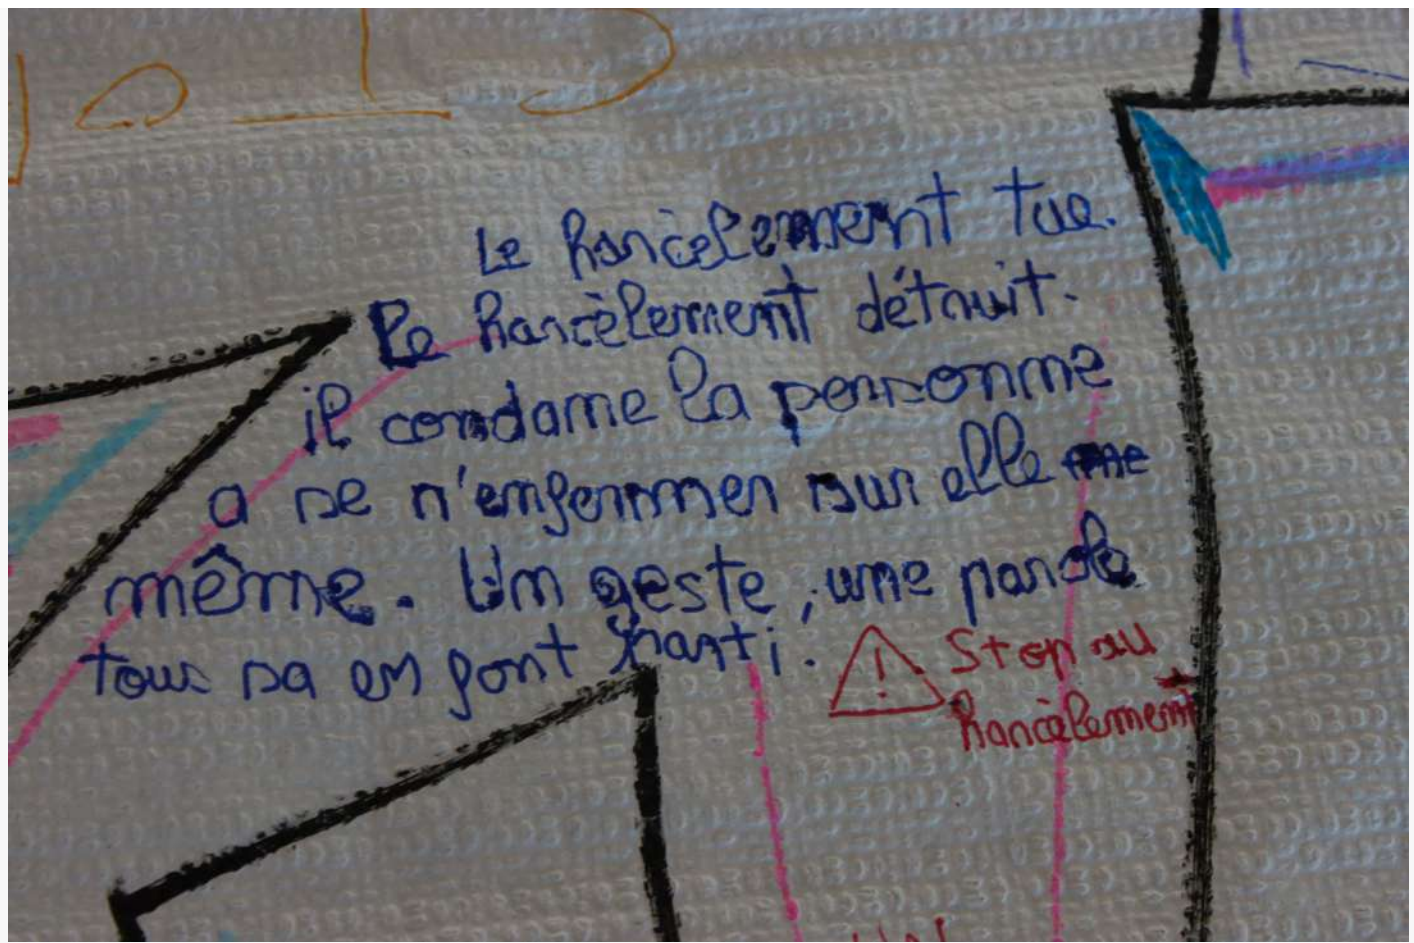 Le harcèlement tue.
Le harcèlement détruit.
il condame la personne
a se r'enfermer sur elle
même. Un geste, une parole
tous sa en font parti.
Stop au
harcèlement